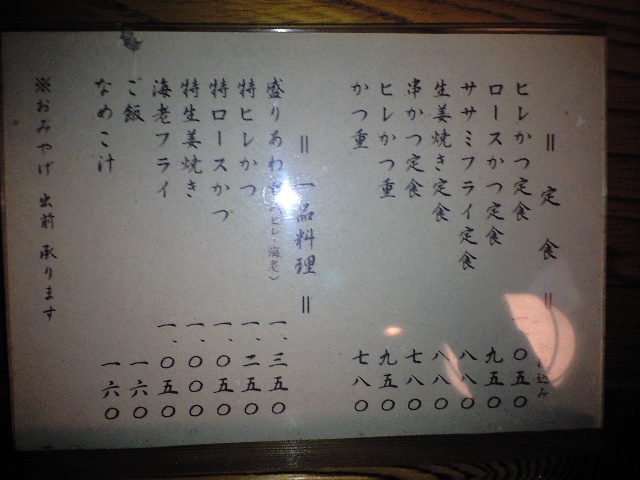 ＝ 定食 ＝
込み
ヒレかつ定食 一、〇五〇
ロースかつ定食 九五〇
ササミフライ定食 八八〇
生姜焼き定食 八八〇
串かつ定食 七八〇
ヒレかつ重 九五〇
かつ重 七八〇
＝ 一品料理 ＝
盛りあわせ(ヒレ・海老) 一、三五〇
特ヒレかつ 一、二五〇
特ロースかつ 一、〇五〇
特生姜焼き 一、〇〇〇
海老フライ 一、〇五〇
ご飯 一六〇
なめこ汁 一六〇
※おみやげ 出前 承ります